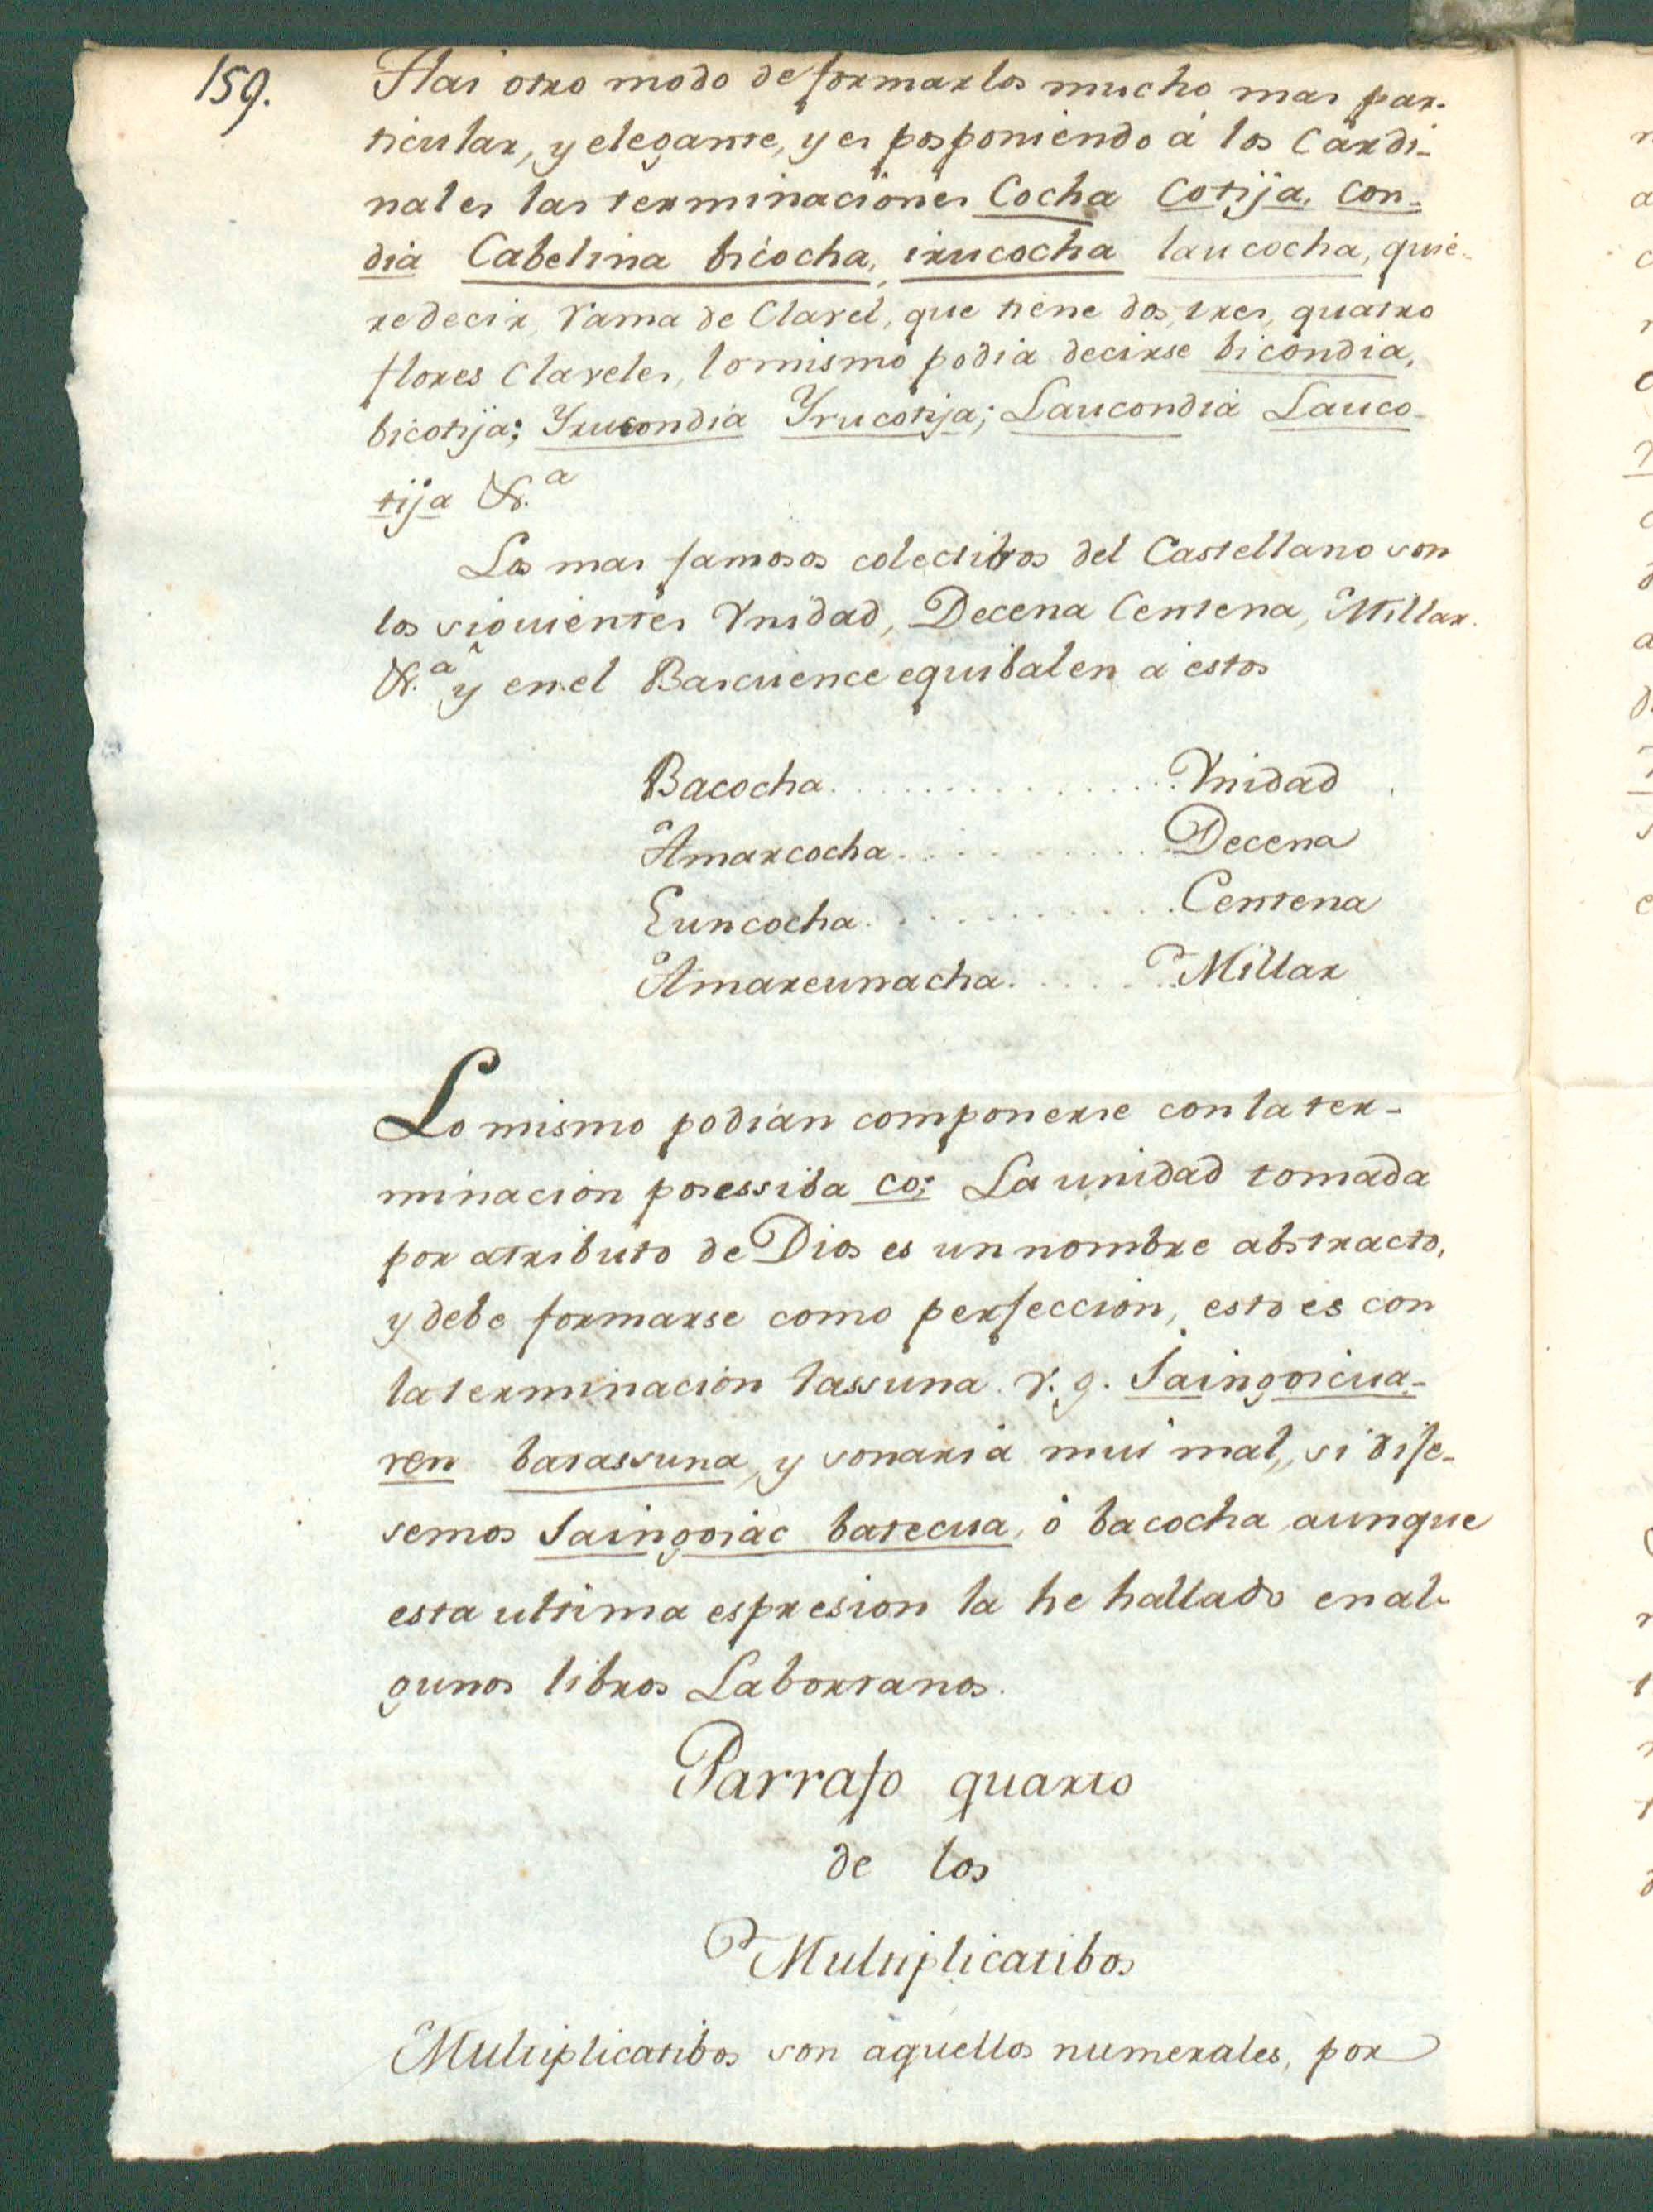 159.
Hai otro modo de formarlos mucho mas par-
ticular, y elegante, y es posponiendo á los Cardi-
nales las terminaciones Cocha Cotija, con-
dia Cabelina bicocha, irucocha laucocha, quie-
re decir, Rama de Clavel, que tiene dos, tres, quatro
flores Claveles, lo mismo podia decirse bicondia,
bicotija; Yrucondia Yrucotija; Laucondia Lauco-
tija &.a
Los mas famosos colectibos del Castellano son
los siguientes Vnidad, Decena Centena, Millar.
&.a y en el Bascuence equibalen a estos
Bacocha. . . . . . . . . . . . . . . Vnidad
Amarcocha . . . . . . . . . . . Decena
Euncocha . . . . . . . . . . . Centena
Amareunacha . . . . . . . Millar
Lo mismo podian componerse con la ter-
minacion posessiba co; La unidad tomada
por atributo de Dios es un nombre abstracto,
y debe formarse como perfeccion, esto es con
la terminacion tassuna. v. g. Jaingoicua-
ren batassuna, y sonaria mui mal, si dije-
semos Jaingoiac batecua, ó bacocha aunque
esta ultima espresion la he hallado en al-
gunos libros Labortanos.
Parrafo quarto
de los
Multiplicatibos
Multiplicatibos son aquellos numerales, por